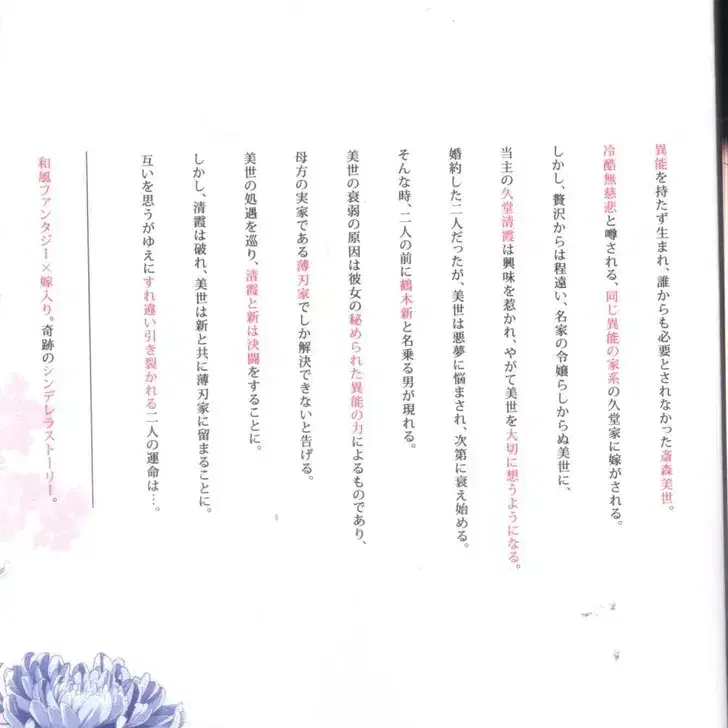 異能を持たず生まれ、誰からも必要とされなかった斎森美世。
冷酷無慈悲と噂される、同じ異能の家系の久堂家に嫁がされる。
しかし、贅沢からは程遠い、名家の令嬢らしからぬ美世に、
当主の久堂清霞は興味を惹かれ、やがて美世を大切に想うようになる。
婚約した二人だったが、美世は悪夢に悩まされ、次第に衰え始める。
そんな時、二人の前に鶴木新と名乗る男が現れる。
美世の衰弱の原因は彼女の秘められた異能の力によるものであり、
母方の実家である薄刃家でしか解決できないと告げる。
美世の処遇を巡り、清霞と新は決闘をすることに。
しかし、清霞は破れ、美世は新と共に薄刃家に留まることに。
互いを思うがゆえにすれ違い引き裂かれる二人の運命は…。
和風ファンタジー×嫁入り。奇跡のシンデレラストーリー。